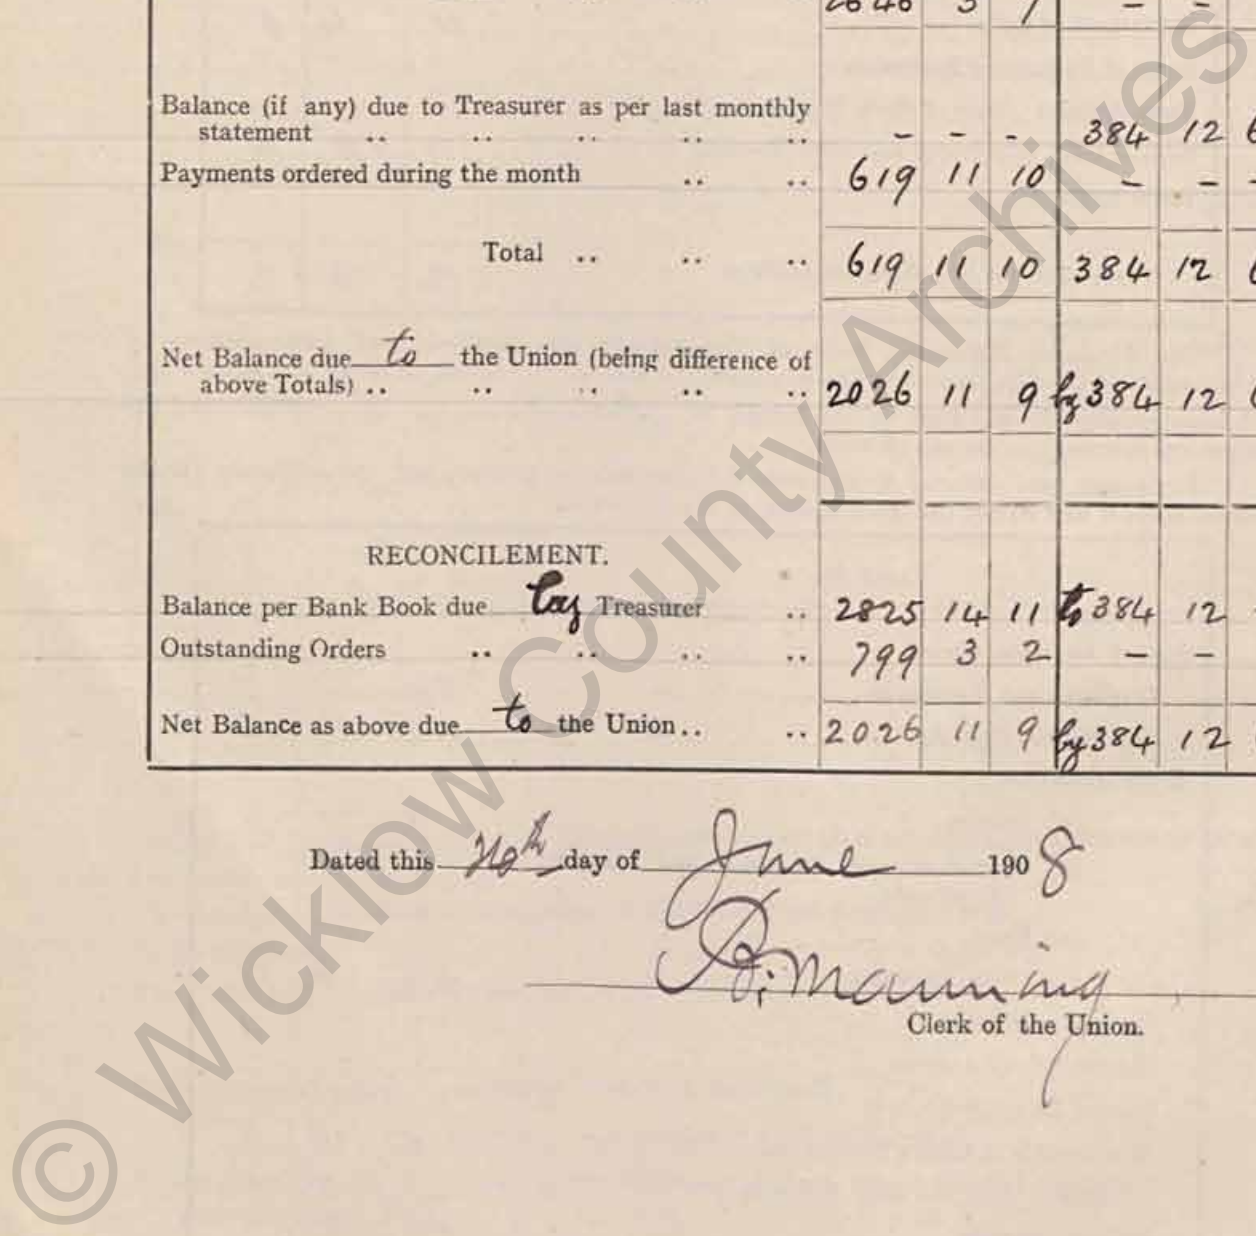 2646 3 7 - -
Balance (if any) due to Treasurer as per last monthly
statement .. .. .. .. .. - - - 384 12 6
Payments ordered during the month .. .. 619 11 10 - - -
Total .. .. .. 619 11 10 384 12 6
Net Balance due to the Union (being difference of
above Totals) .. .. .. .. .. 2026 11 9 by 384 12 6
RECONCILEMENT.
Balance per Bank Book due by Treasurer .. 2825 14 11 to 384 12
Outstanding Orders .. .. .. .. 799 3 2 - -
Net Balance as above due to the Union .. .. 2026 11 9 by 384 12
Dated this day of June 1908
Manning
Clerk of the Union.
© Wicklow County Archives